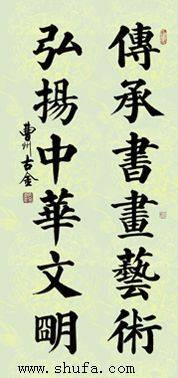 傳承書畫藝術
弘揚中華文明
曹州古金
www.shufa.com